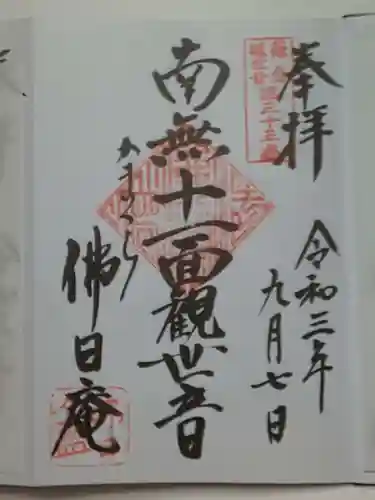 奉拝
令和三年
九月七日
南無十一面觀世音
かまくら
佛日庵